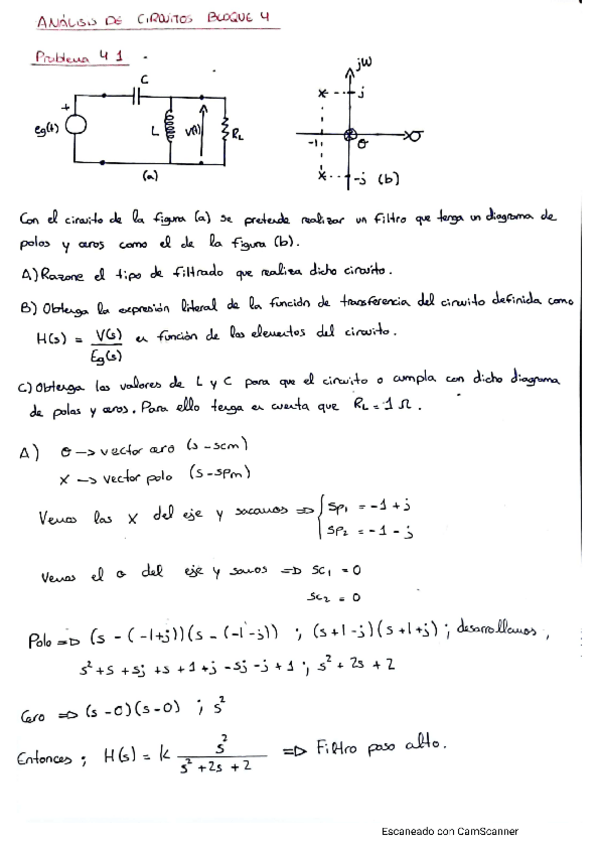 ANÁLISIS DE CIRCUITOS BLOQUE 4
Problema 4 1
C
+
eg(t)
L
v(t)
RL
(a)
jw
j
-1
0
σ
-j (b)
Con el circuito de la figura (a) se pretende realizar un filtro que tenga un diagrama de
polos y ceros como el de la figura (b).
A) Razone el tipo de filtrado que realiza dicho circuito.
B) Obtenga la expresión literal de la función de transferencia del circuito definida como
H(s) = V(s)/Eg(s) en función de los elementos del circuito.
C) Obtenga los valores de L y C para que el circuito a cumpla con dicho diagrama
de polos y ceros. Para ello tenga en cuenta que RL = 1 Ω.
A) O -> vector cero (s - scm)
X -> vector polo (s - spm)
Vemos las X del eje y sacamos => { sp1 = -1 + j
sp2 = -1 - j
Vemos el o del eje y => sc1 = 0
sc2 = 0
Polo => (s - (-1+j))(s - (-1-j)) ; (s+1-j)(s+1+j) ; desarrollamos,
s² + s + sj + s + 1 + j - sj - j + 1 ; s² + 2s + 2
Cero => (s-0)(s-0) ; s²
Entonces ; H(s) = k s²/(s² + 2s + 2) => Filtro paso alto.
Escaneado con CamScanner